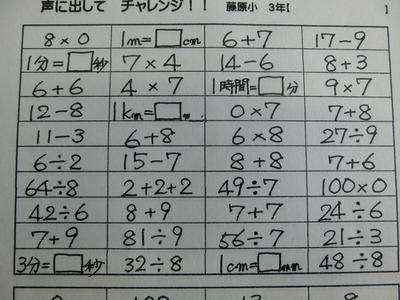 声に出して チャレンジ!! 藤原小 3年【 】
8×0 1m=□cm 6+7 17−9
1分=□秒 7×4 14−6 8+3
6+6 4×7 1時間=□分 9×7
12−8 1km=□m 0×7 7+8
11−3 6+8 6×8 27÷9
6÷2 15−7 8+8 7+6
64÷8 2+2+2 49÷7 100×0
42÷6 8+9 7+7 24÷6
7+9 81÷9 56÷7 21÷3
3分=□秒 32÷8 1cm=□mm 48÷8